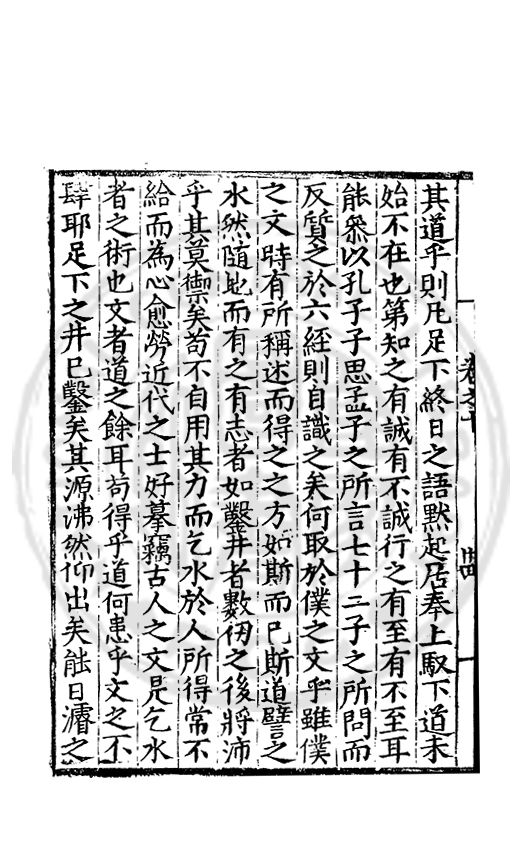 其道乎則凡足下終日之語默起居奉上馭下道未
始不在也第知之有誠有不誠行之有至有不至耳
能叅以孔子子思孟子之所言七十二子之所問而
反質之於六經則自識之矣何取於僕之文乎雖僕
之文時有所稱述而得之之方如斯而已斯道譬之
水然隨地而有之有志者如鑿井者數仞之後將沛
乎其莫禦矣苟不自用其力而乞水於人所得常不
給而為心愈勞近代之士好摹竊古人之文是乞水
者之術也文者道之餘耳苟得乎道何患乎文之不
肆耶足下之井已鑿矣其源沸然仰出矣能日濬之